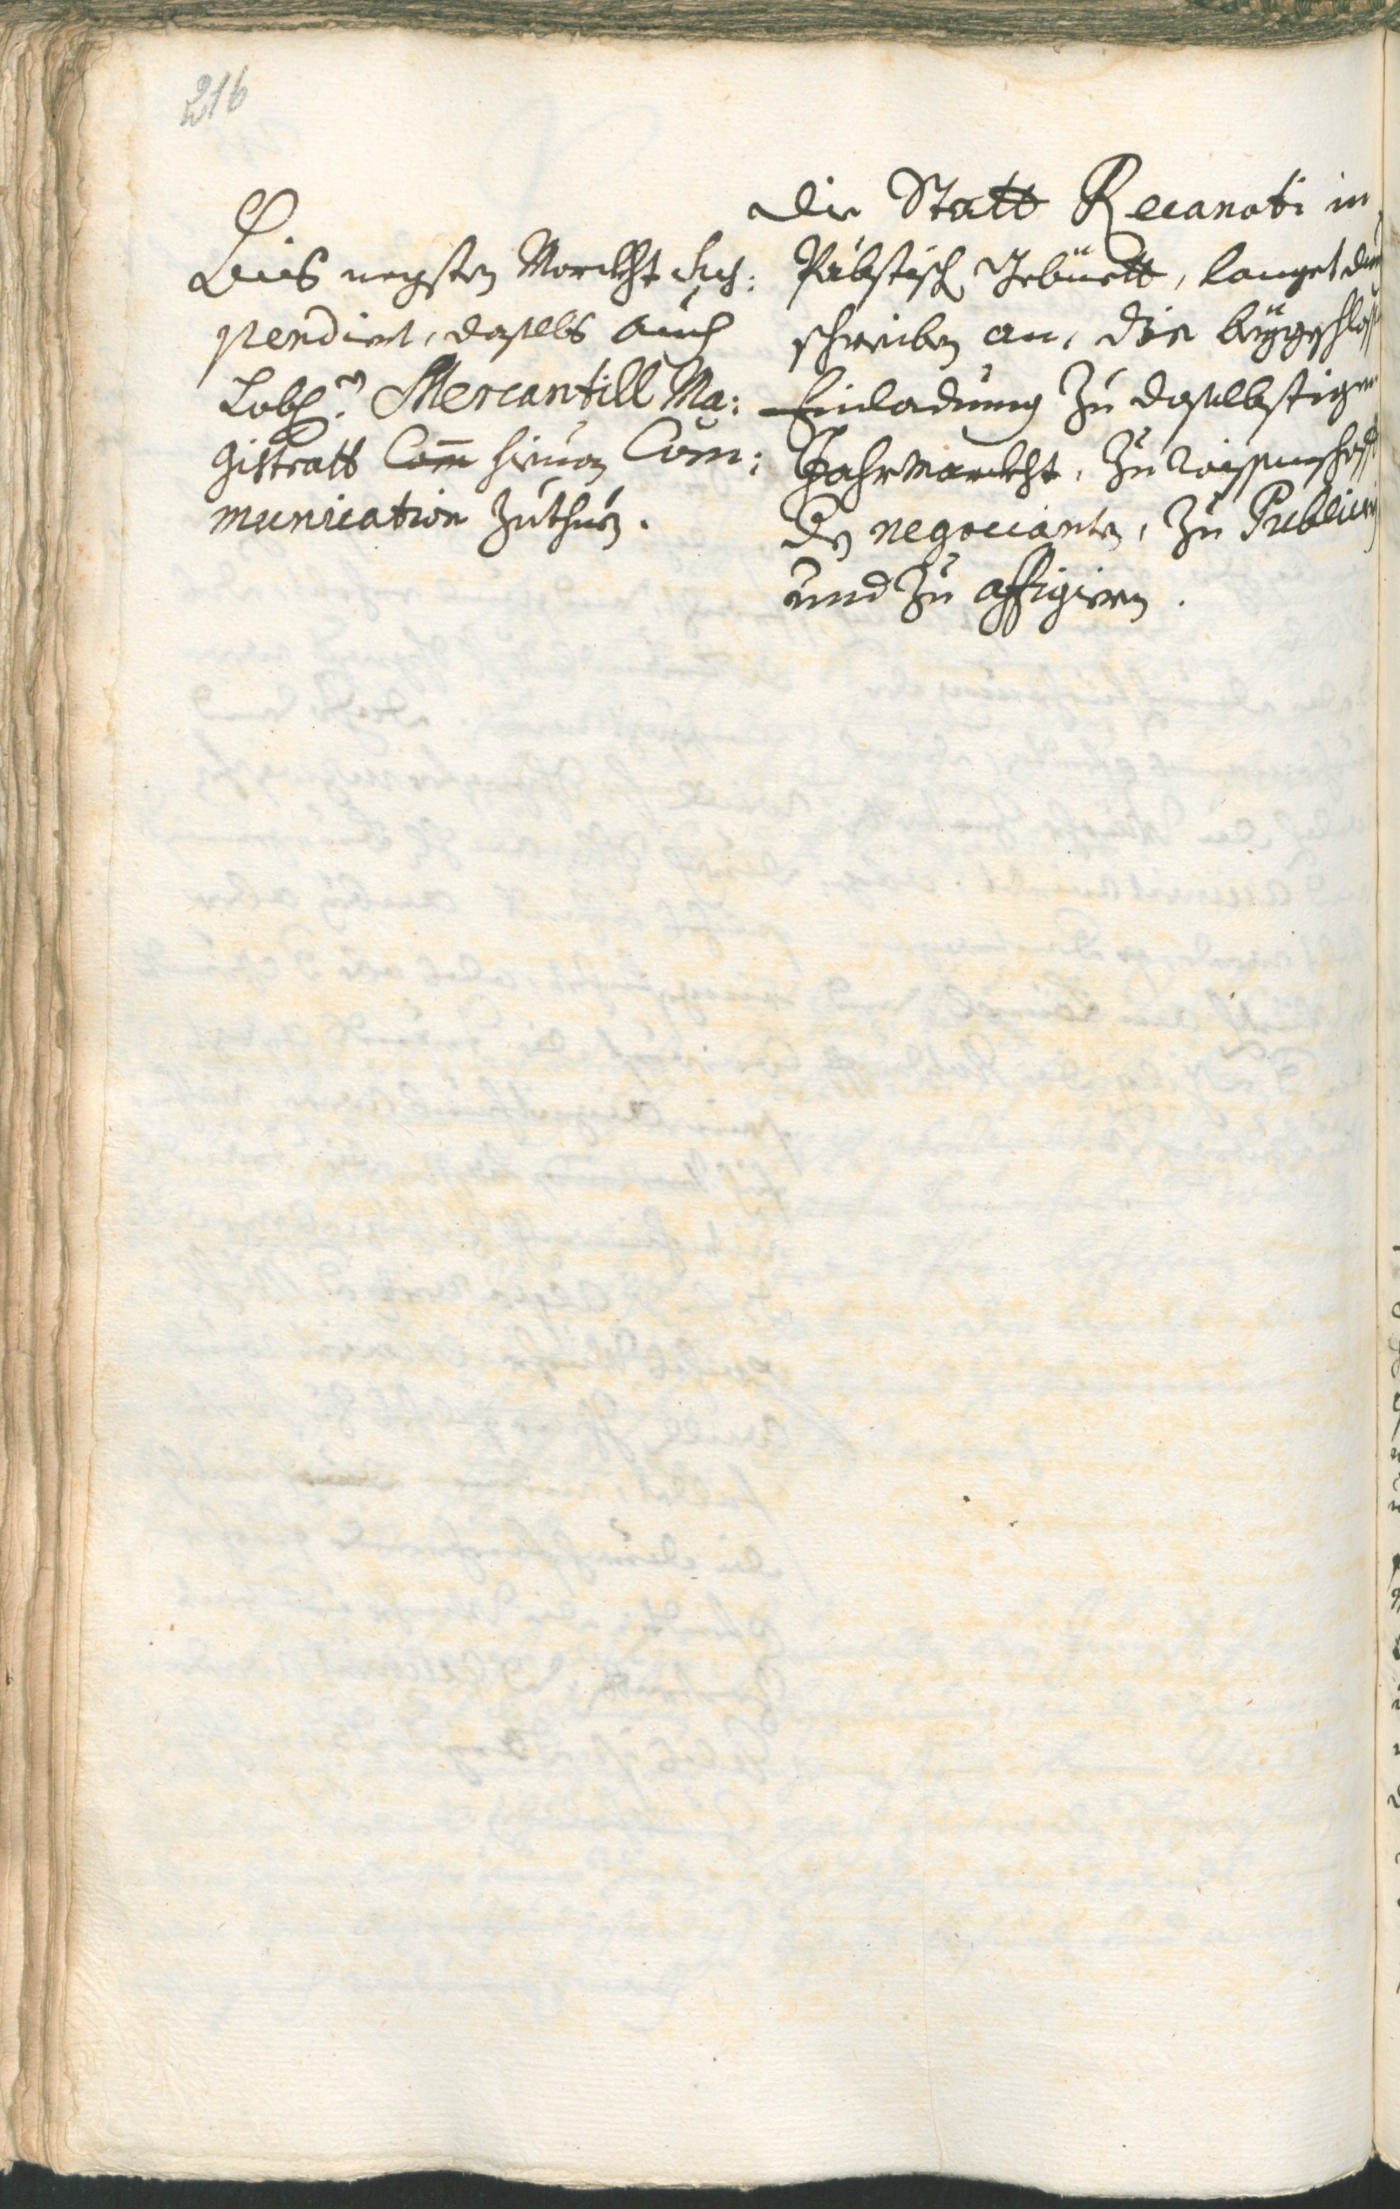 216
Bis negsten Marckht Sus:
pendirt, daselbs auch
Lobl: Mercantill Ma:
gistratt Com hieuon Com:
munication zuthun.
Die Statt Recanati in
Päbstisch Gebüett, langet durch
schreiben an, die beÿgeschlossne
Einladung zu daselbstigen
Jahrmarckht, zu wissenschafft
der negocianten, zu Publicirn
und zu affigiren.